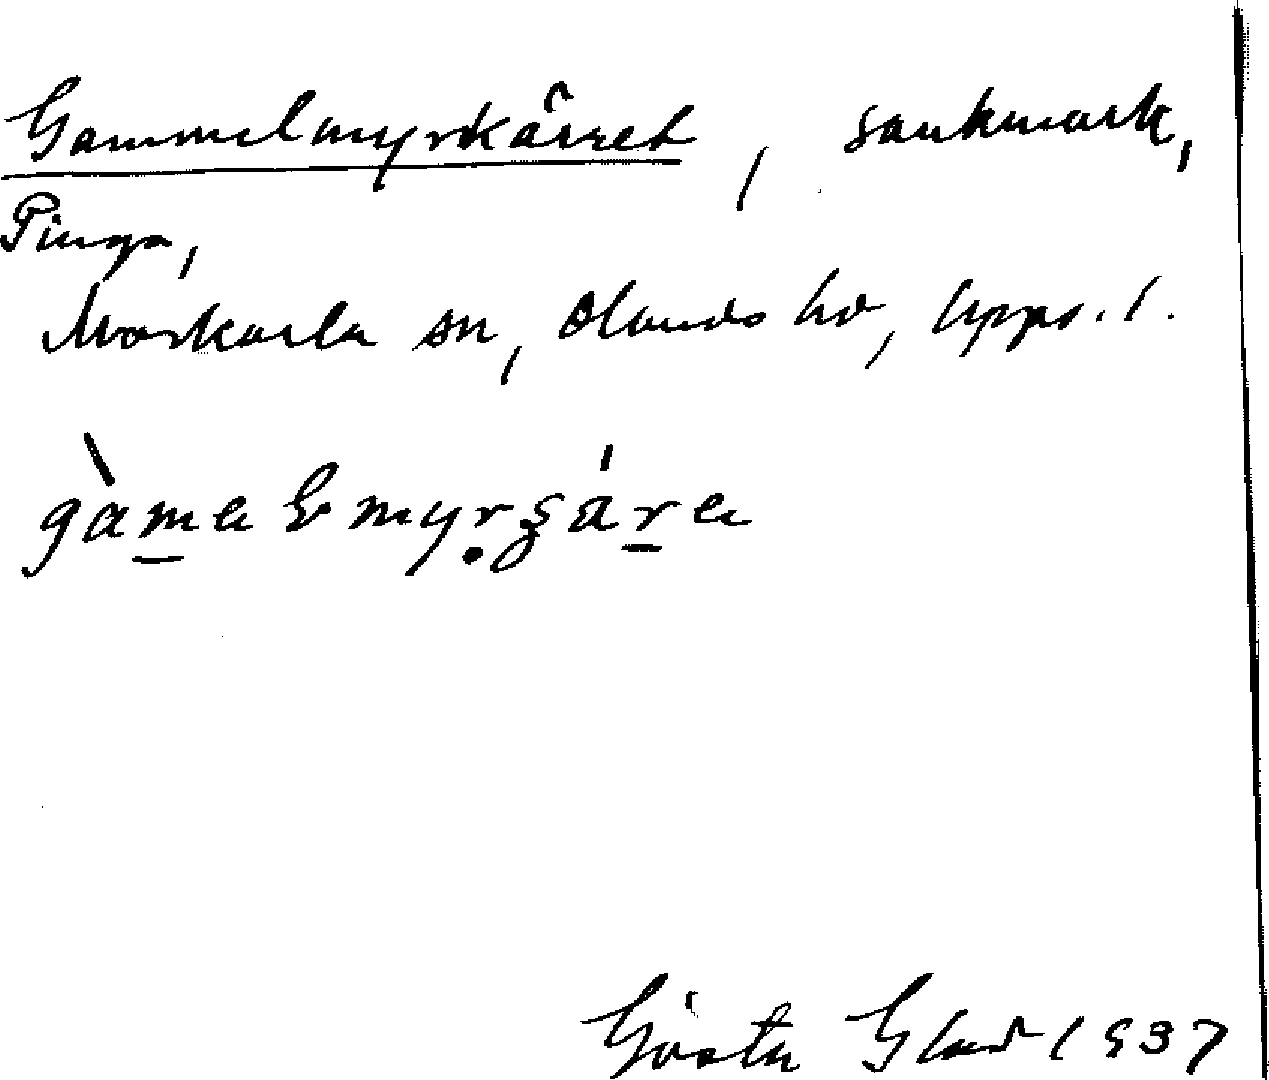 Gammelmyrkärret, sankmark,
Pinga,
Morkarla sn, Olands hd, Upps. l.
Gösta Glad 1937